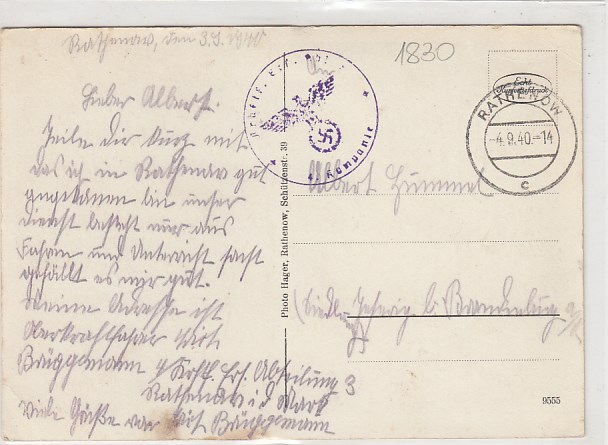 Rathenow, den 3.9.1940
Lieber Albert.
Teile Dir kurz mit
das ich in Rathenow gut
angekommen bin unser
Dienst besteht nur aus
Fahren und Unterricht sonst
gefällt es mir gut.
Meine Adresse ist
Oberkraftfahrer Kurt
Brüggemann 4/ Krftf. Ers. Abteilung 3
Rathenow i d Mark
Viele Grüße von Kurt Brüggemann
An
Albert Hummel
Jeserig b. Brandenburg a/H
1830
Echt
Kupfertiefdruck
RATHENOW
-4.9.40.-14
c
4. Kompanie
Photo Hager, Rathenow, Schützenstr. 39
9555